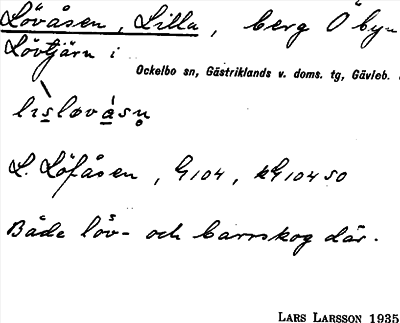 Lövåsen, Lilla, berg Ö byn
Lövtjärn i
Ockelbo sn, Gästriklands v. doms. tg, Gävleb.
lislovåsn̥
L. Löfåsen, G104, kG104 SO
Både löv- och barrskog där.
LARS LARSSON 1935